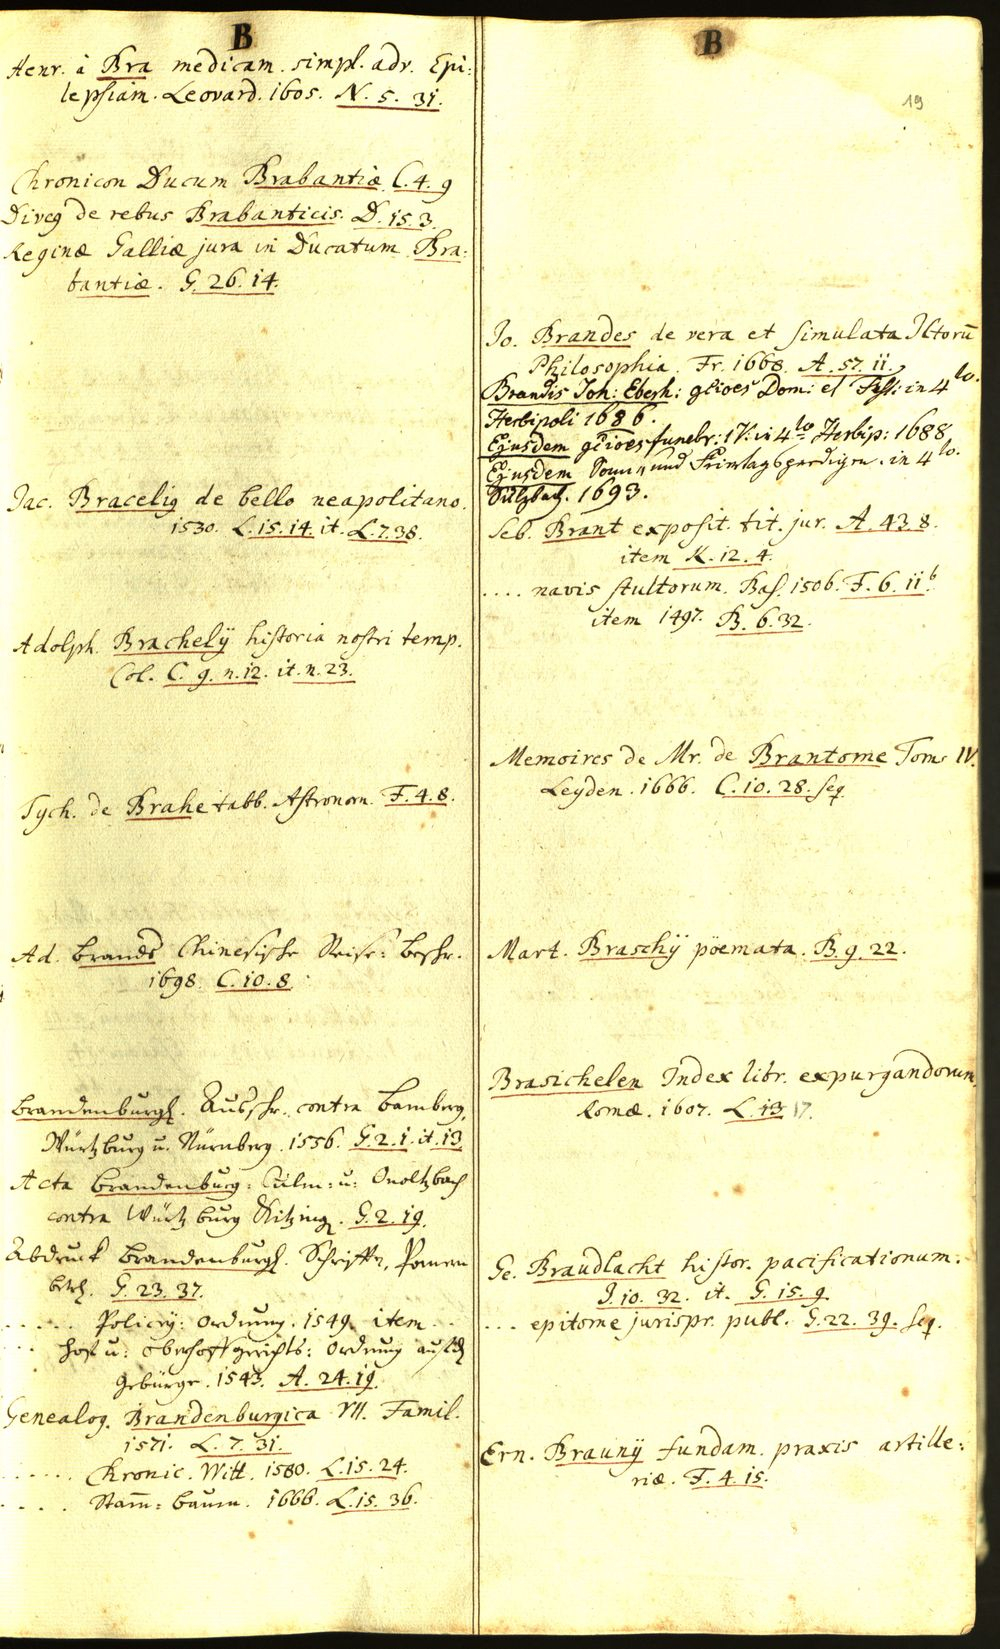 B
Henr. à Bra medicam. simpl. adv. Epi:
lepsiam. Leovard. 1605. N. 5. 31.
Chronicon Ducum Brabantiæ C. 4. 9
Divæus de rebus Brabanticis. D. 15. 3.
Reginæ Galliæ jura in Ducatum Bra:
bantiæ. G. 26. 14.
Jac. Bracelig de bello neapolitano.
1530. L. 15. 14. it. L. 7. 38.
Adolph. Brachelÿ historia nostri temp.
Col. C. 9. n. 12. it. n. 23.
Tych. de Brahe tabb. Astronom. F. 4. 8.
Ad. Brands Chinesische Reise: Beschr.
1698. C. 10. 8.
Brandenburgl. Ausschr. contra Bamberg,
Würtzburg u. Nürnberg. 1556. G. 2. 1. it. 13
Acta Brandenburg: Culm: u: Onoltzbach
contra Würtzburg Kitzing. G. 2. 19.
Abdruck Brandenburgl. Schrifften, Pomern
betrl. G. 23. 37.
..... Policey: Ordnung. 1549. item
... Hoff u: Oberhoffgerichts: Ordnung auf
Gebürge. 1543. A. 24. 19.
Genealog. Brandenburgica VII. Famil.
1571. L. 7. 31.
..... Chronic. Witt. 1580. L. 15. 24.
.... Stam̄: Baum. 1666. L. 15. 36.
B
19
Jo. Brandes de vera et simulata Ictorū
Philosophia. Fr. 1668. A. 57. 11.
Brandis Joh: Eberh: Dom: et Fest: in 4to.
Herbipoli 1686.
Ejusdem funebr: in 4to Herbip: 1688
Ejusdem Sonn- und Feirtagspredigen. in 4to.
Sultzbach. 1693.
Seb. Brant exposit. tit. jur. A. 43. 8.
item K. 12. 4.
.... navis stultorum. Bas. 1506. F. 6. 11b.
item 1497. B. 6. 32.
Memoires de Mr. de Brantome Tom. IV.
Leyden. 1666. C. 10. 28. seq
Mart. Braschÿ pöemata. B. 9. 22.
Brasichelen Index libr. expurgandorum.
Romæ. 1607. L. 13 17.
Ge. Braudlacht histor. pacificationum.
J. 10. 32. it. G. 15. 9.
... epitome jurispr. publ. G. 22. 39. seq.
Ern. Braunÿ fundam. praxis artille:
riæ. F. 4. 15.